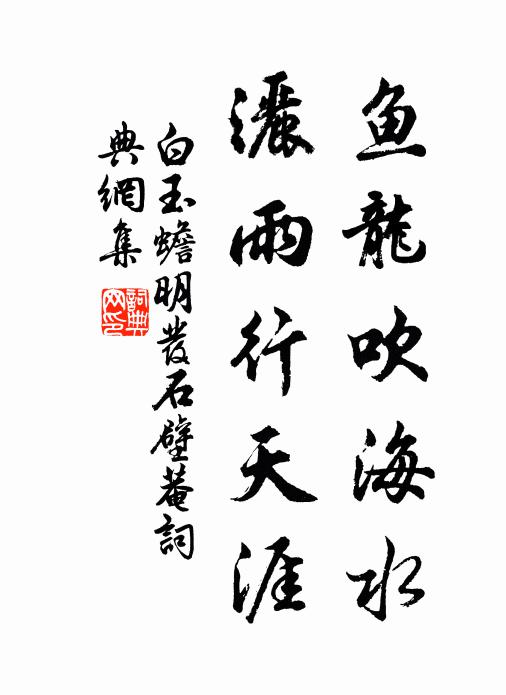 鱼龍吹海水
灑雨行天涯
白玉蟾明發石壁菴詞
典網集
詞典網印